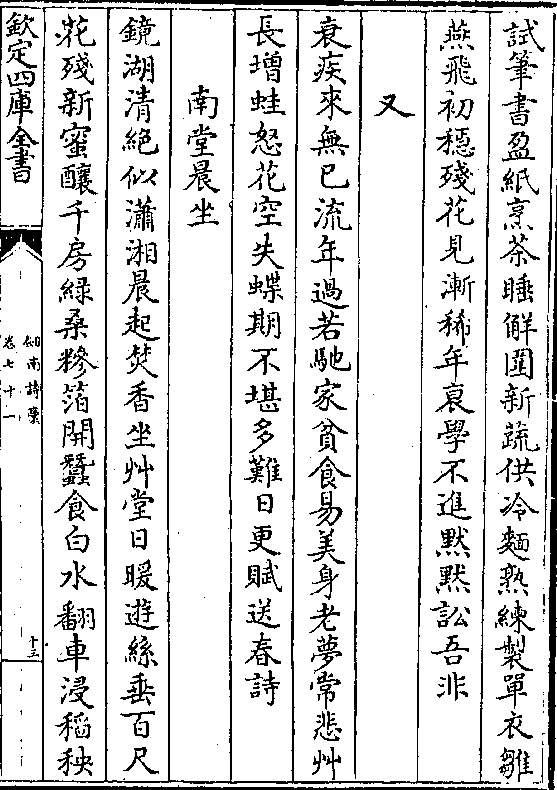 試筆書盈紙烹茶睡解圍新蔬供冷麵熟練製單衣雛
燕飛初穏殘花見漸稀年衰學不進默默訟吾非
又
衰疾來無已流年過若馳家貧食易美身老夢常悲艸
長增蛙怒花空失蝶期不堪多難日更賦送春詩
南堂晨坐
鏡湖清絶似瀟湘晨起焚香坐艸堂日暖遊絲垂百尺
花殘新蜜釀千房緑桑糝箔開蠶食白水翻車浸稻秧
欽定四庫全書
劔南詩藁
卷七十一
十三